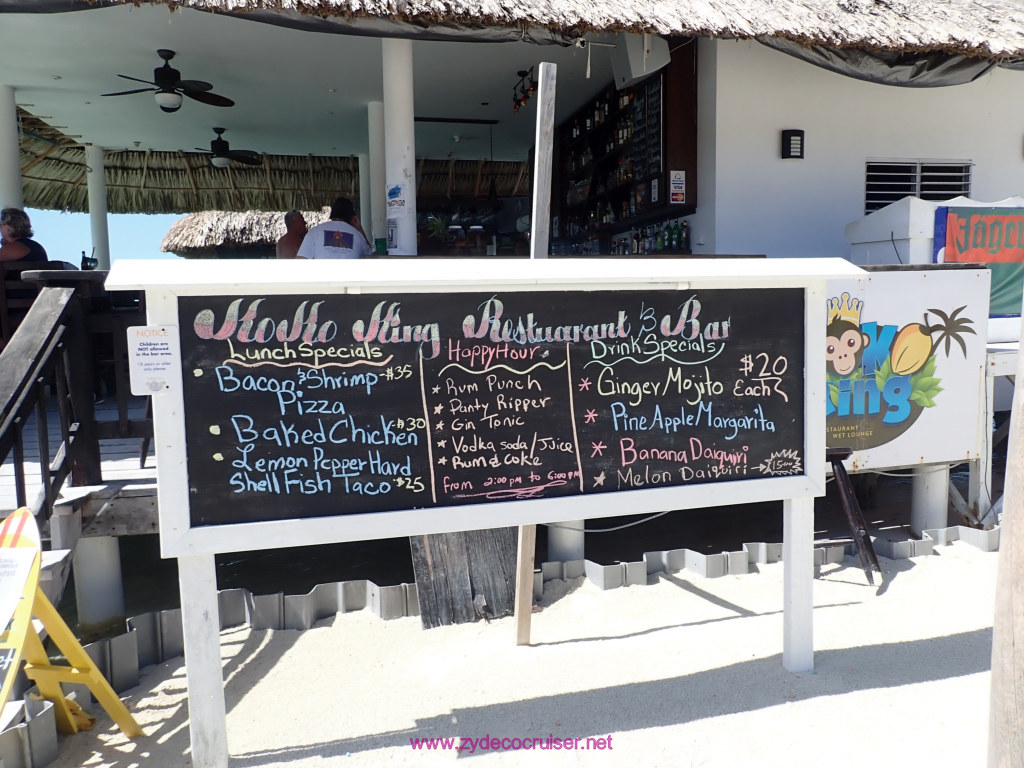 KoKo King Restuarant & Bar
Lunch Specials
Bacon & Shrimp - $35
Pizza
Baked Chicken - $30
Lemon Pepper Hard
Shell Fish Taco $25
Happy Hour
Rum Punch
Panty Ripper
Gin Tonic
Vodka soda/Juice
Rum & Coke
from 2:00 pm to 6:00 pm
Drink Specials
$20
Ginger Mojito Each
Pine Apple Margarita
Banana Daiquiri
Melon Daiquiri 15.00
NOTICE
Children are
NOT allowed
in the bar area.
KoKo
King
RESTAURANT
WET LOUNGE
VISA
www.zydecocruiser.net